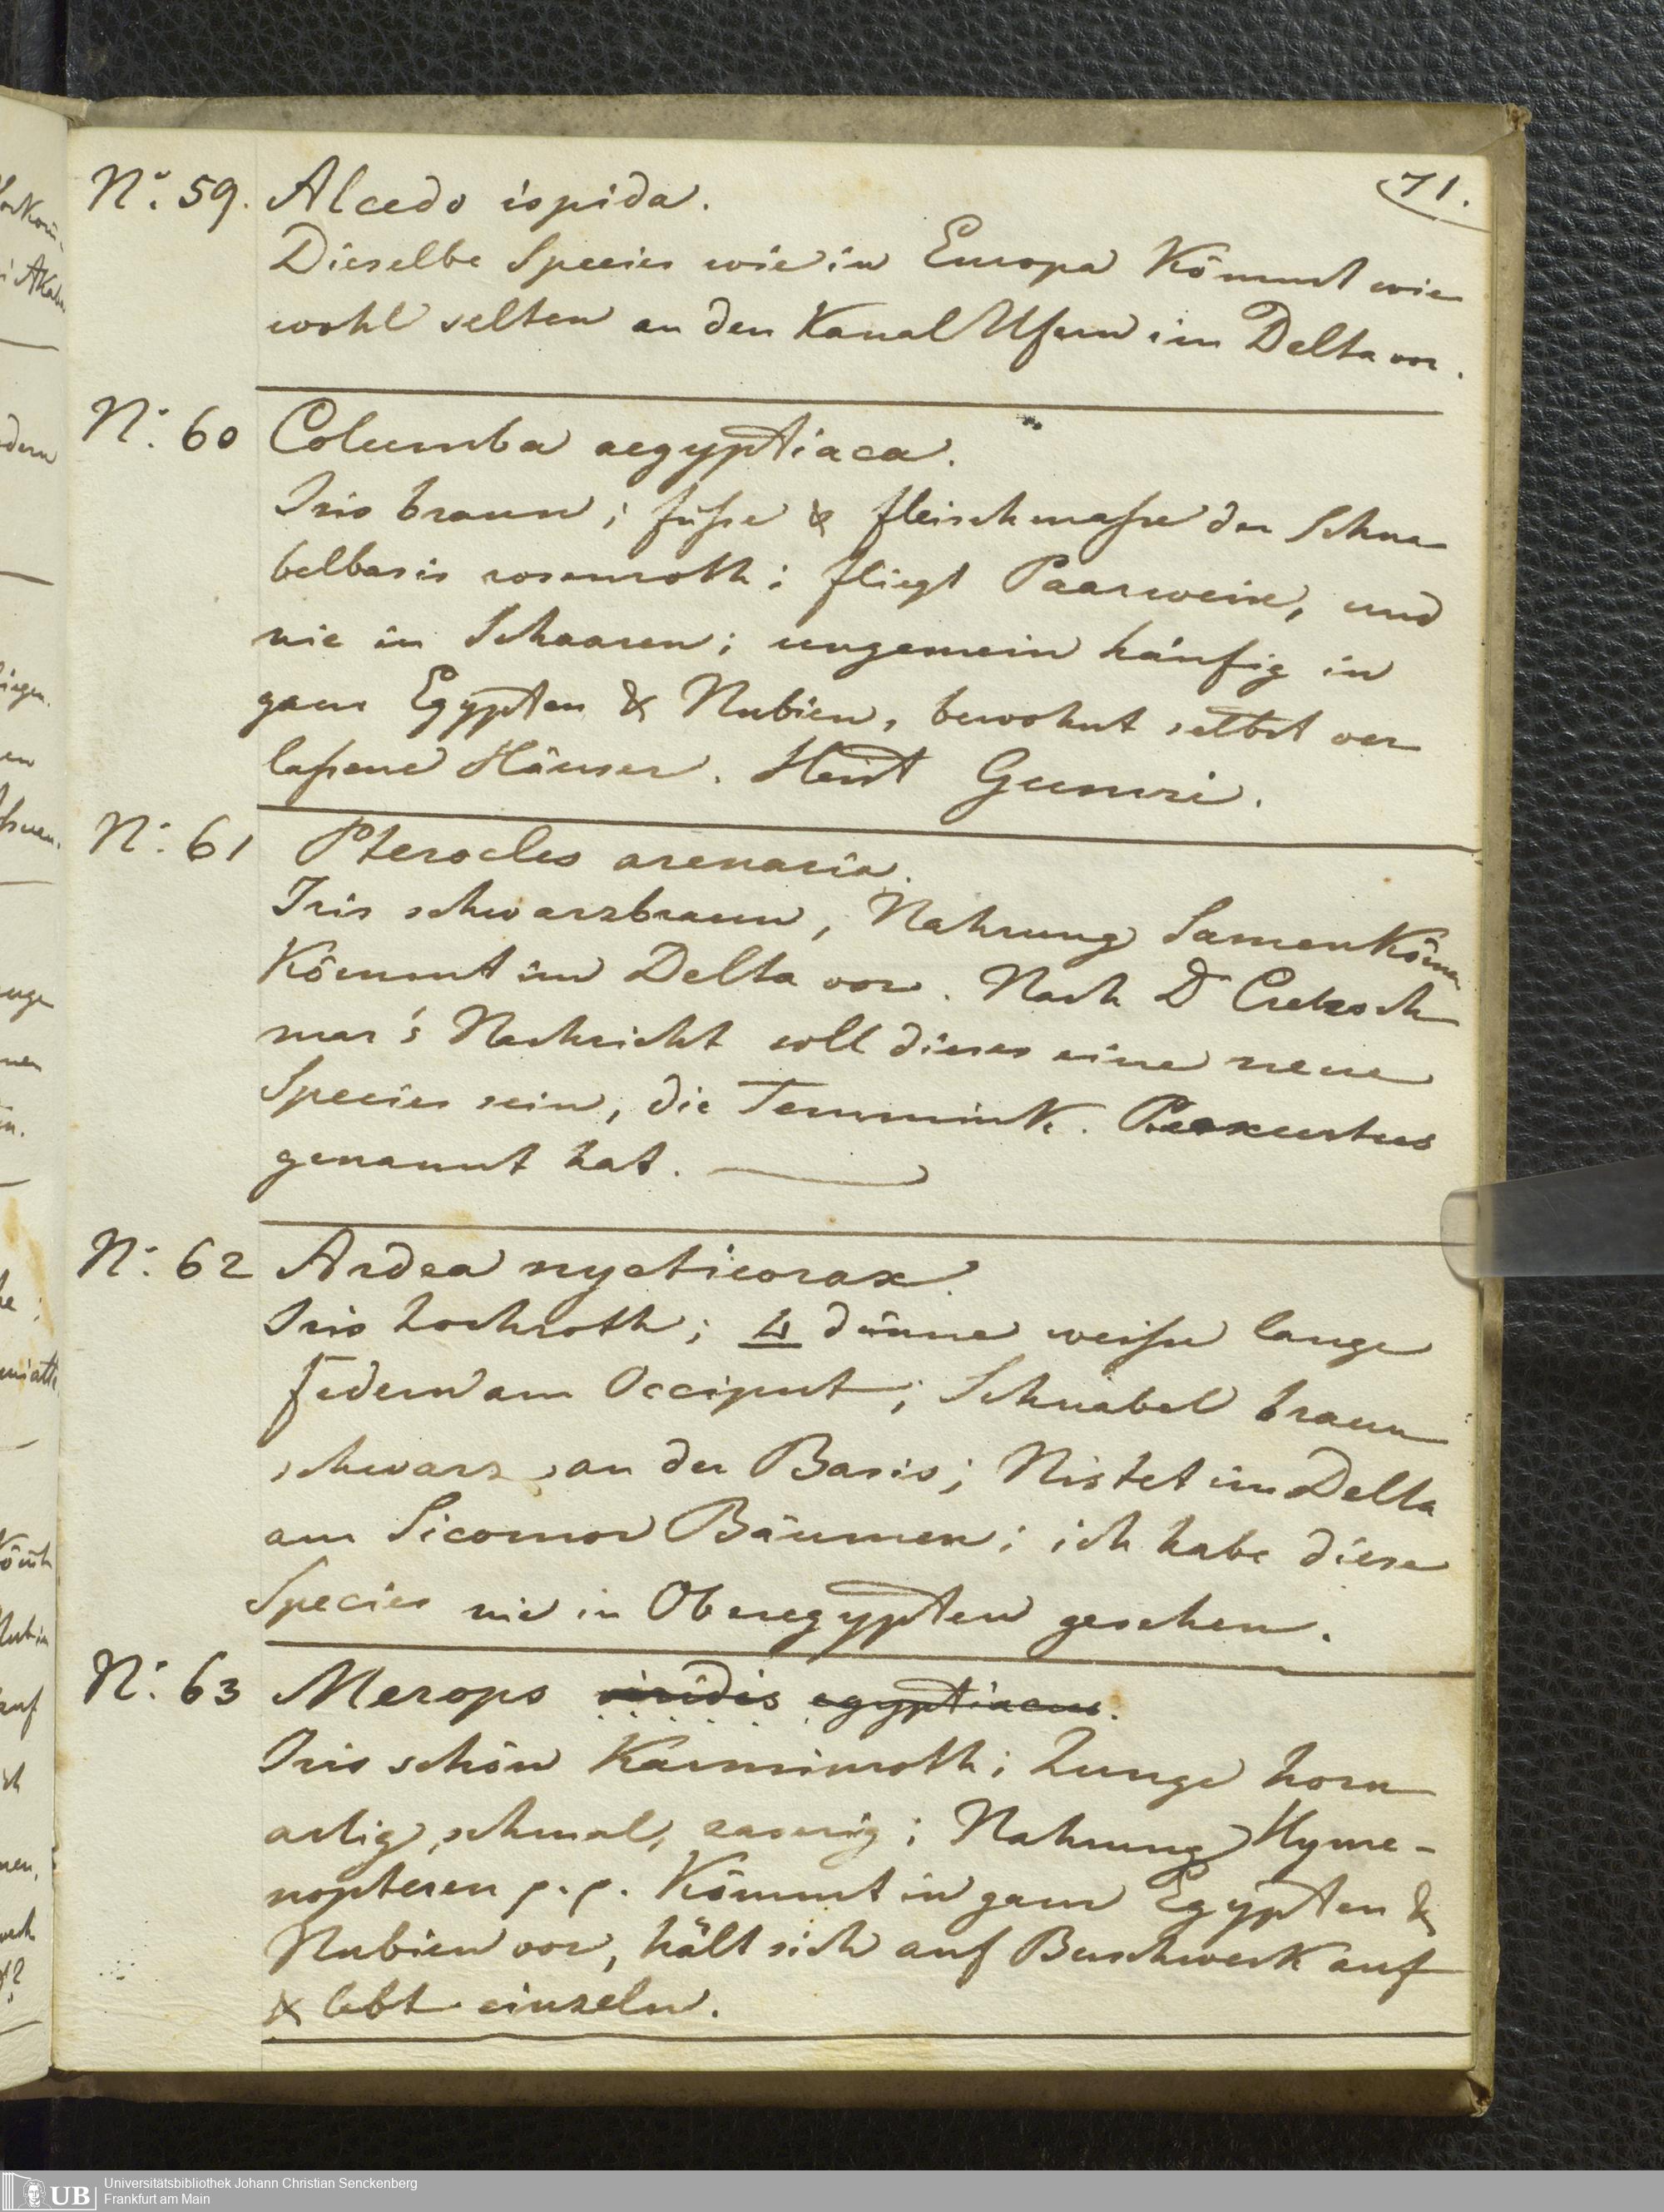 71.
No. 59. Alcedo ispida.
Dieselbe Species wie in Europa Kömmt wie
wohl selten an den Kanal Ufern im Delta vor.
No. 60 Columba aegyptiaca.
Iris braun; füße & fleischmaße der Schna-
belbasis rosenroth; fliegt Paarweise, und
nie in Schaaren; ungemein häufig in
ganz Egypten & Nubien, bewohnt selbst ver
laßene Häuser. Heist Gumri.
No. 61 Pterocles arenaria.
Iris schwarzbraun, Nahrung Samenkörner
Kömmt im Delta vor. Nach Dr Cretzsch
mar's Nachricht soll dieses eine neue
Species sein, die Temmink. P. exustus
genannt hat.
No. 62 Ardea nycticorax.
Iris hochroth; dünne weiße lange
federn am Occiput; Schnabel braun
schwarz, an der Basis; Nistet im Delta
am Sicomor Bäumen; ich habe diese
Species nie in Oberegypten gesehen.
No. 63 Merops viridis egyptiacus.
Iris schön Karminroth; Zunge horn
artig, schmal, zaserig; Nahrung Hyme-
nopteren p.p. Kömmt in ganz Egypten &
Nubien vor, hält sich auf Buschwerk auf
& lebt einzeln.
UB Universitätsbibliothek Johann Christian Senckenberg
Frankfurt am Main